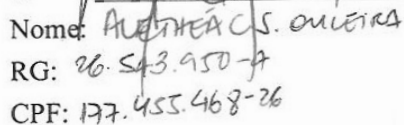 Nome: ALETHEA C. S. OLIVEIRA
RG: 26.543.950-A
CPF: 177.455.468-26